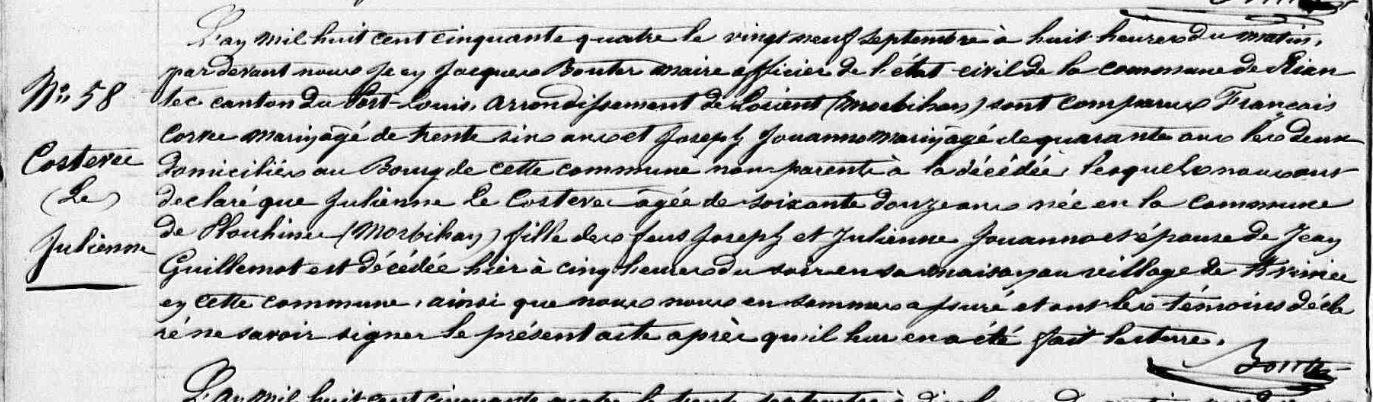 L'an mil huit cent cinquante quatre le vingt neuf septembre à huit heures du matin,
par devant nous Jean Jacques Bonter maire officier de l'état civil de la commune de Rian
N° 58
tec canton du Port-Louis, arrondissement de Lorient (Morbihan) sont comparus François
marin âgé de trente six ans et Joseph Jouanno marin âgé de quarante ans les deux
Costevec
domiciliés au Bourg de cette commune non parents à la décédée, lesquels nous ont
(Le)
declaré que Julienne Le Costevec âgée de soixante douze ans née en la commune
Julienne
de Plouhinec (Morbihan) fille des feus Joseph et Julienne Jouanno et épouse de Jean
Guillemot est décédée hier à cinq heures du soir en sa maison au village de
en cette commune, ainsi que nous nous en sommes assuré et ont les témoins décla
ré ne savoir signer le présent acte après qu'il leur en a été fait lecture.
L'an mil huit cent cinquante quatre le trente septembre à